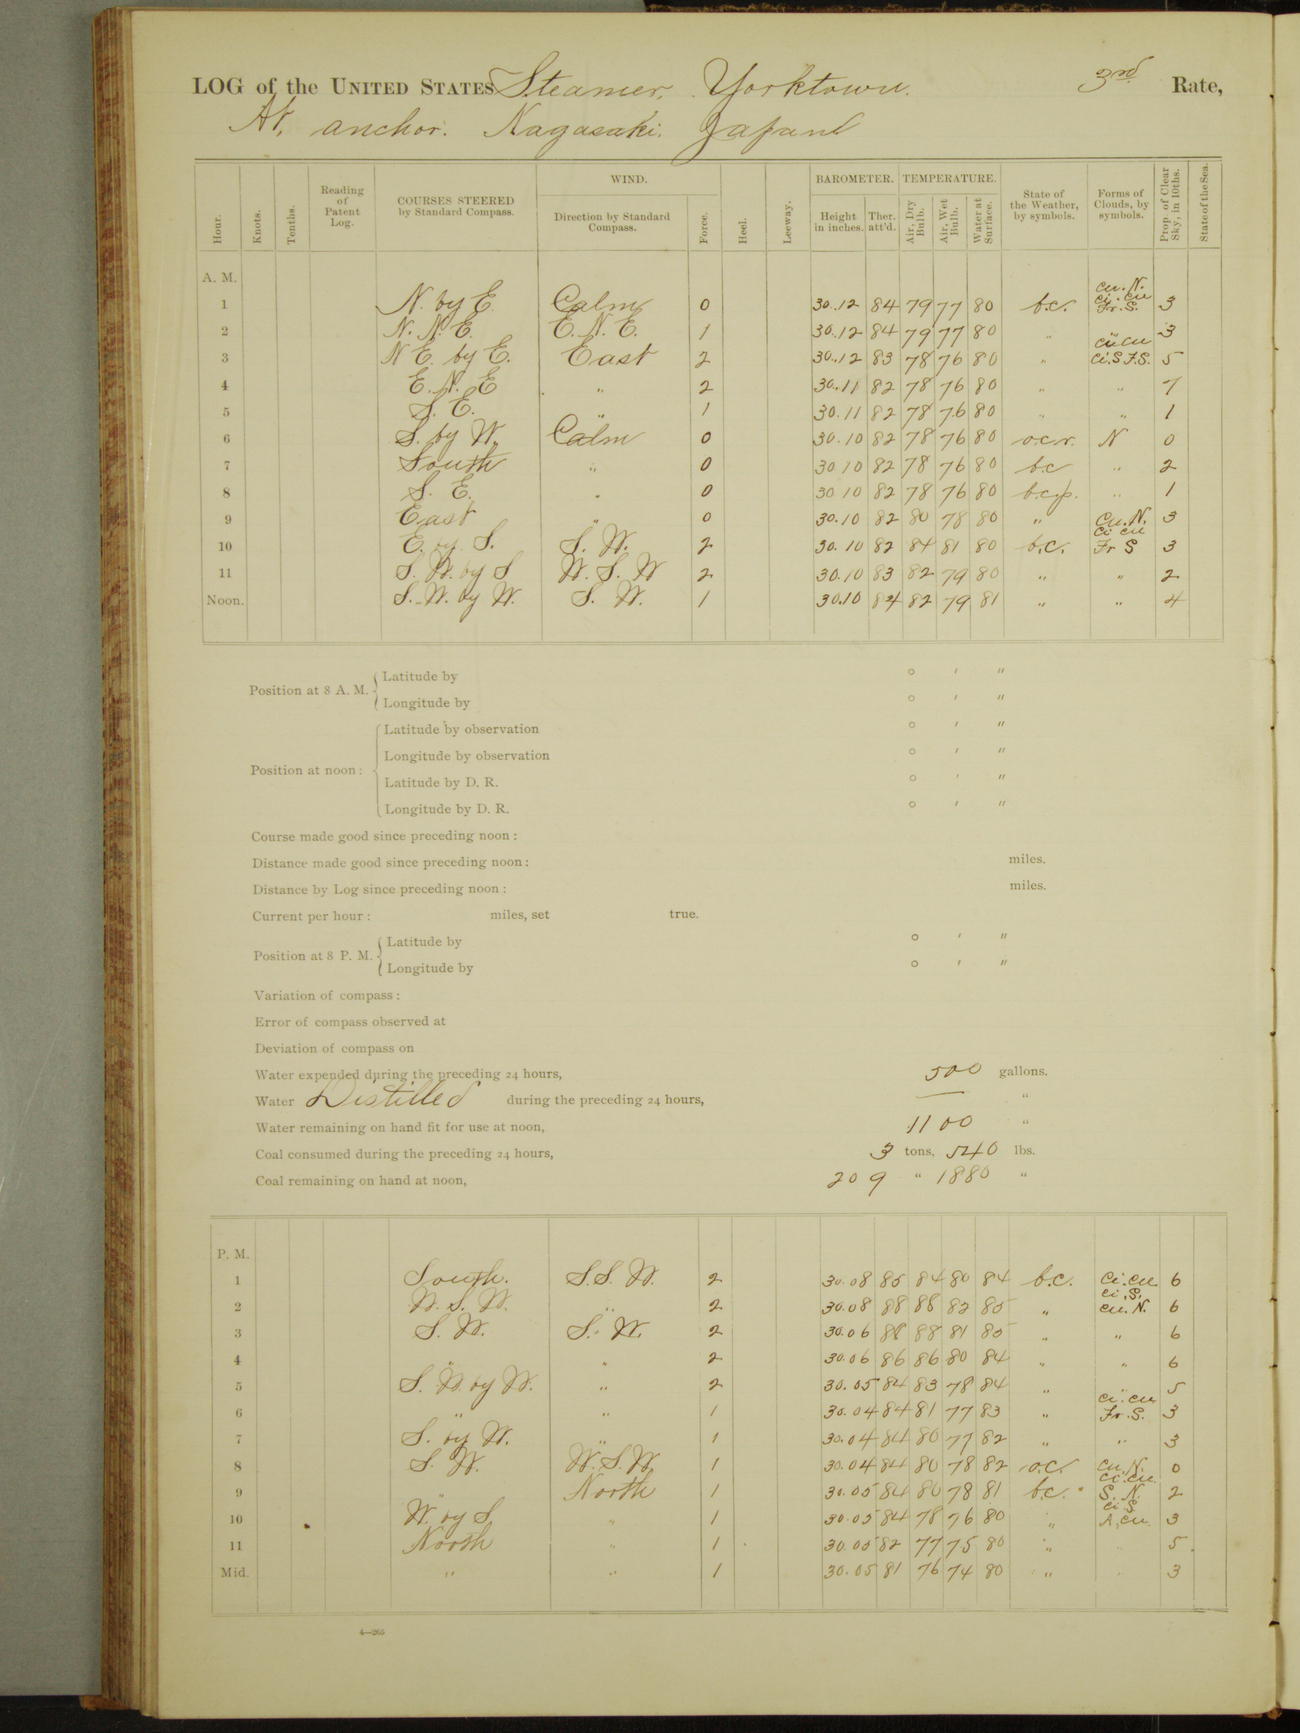 LOG of the UNITED STATES Steamer. Yorktown. 3rd Rate,
At, anchor. Nagasaki. Japan
Hour. Knots. Tenths. Reading of Patent Log. COURSES STEERED by Standard Compass. WIND. Direction by Standard Compass. Force. Heel. Leeway. BAROMETER. Height in inches. Ther. att'd. TEMPERATURE. Air, Dry Bulb. Air, Wet Bulb. Water at Surface. State of the Weather, by symbols. Forms of Clouds, by symbols. Prop. of Clear Sky, in 10ths. State of the Sea.
A. M.
1 N. by E. Calm 0 30.12 84 79 77 80 b.c. cu. N. ci. cu Fr. S. 3
2 N. N. E. E. N. E. 1 30.12 84 79 77 80 " " 3
3 N E. by E. East 2 30.12 83 78 76 80 " ci cu ci. S F. S. 5
4 E. N. E " 2 30.11 82 78 76 80 " " 7
5 S. E. " 1 30.11 82 78 76 80 " " 1
6 S. by W. Calm 0 30.10 82 78 76 80 o.c.r. N 0
7 South " 0 30 10 82 78 76 80 b.c " 2
8 S. E. " 0 30 10 82 78 76 80 b.c.p. " 1
9 East " 0 30.10 82 80 78 80 " Cu. N. 3
10 E. by S. S. W. 2 30.10 82 84 81 80 b.c. ci cu Fr S 3
11 S. W. by S W. S. W 2 30.10 83 82 79 80 " " 2
Noon. S. W. by W. S. W. 1 30.10 84 82 79 81 " " 4
Position at 8 A. M. Latitude by ° ′ ″
Longitude by ° ′ ″
Position at noon: Latitude by observation ° ′ ″
Longitude by observation ° ′ ″
Latitude by D. R. ° ′ ″
Longitude by D. R. ° ′ ″
Course made good since preceding noon:
Distance made good since preceding noon: miles.
Distance by Log since preceding noon: miles.
Current per hour: miles, set true.
Position at 8 P. M. Latitude by ° ′ ″
Longitude by ° ′ ″
Variation of compass:
Error of compass observed at
Deviation of compass on
Water expended during the preceding 24 hours, 500 gallons.
Water Distilled during the preceding 24 hours, — "
Water remaining on hand fit for use at noon, 1100 "
Coal consumed during the preceding 24 hours, 3 tons, 540 lbs.
Coal remaining on hand at noon, 209 " 1880 "
P. M.
1 South. S.S. W. 2 30.08 85 84 80 84 b.c. Ci. cu 6
2 W. S. W. " 2 30.08 88 88 82 85 " ci. S. cu. N. 6
3 S. W. S. W. 2 30.06 88 88 81 85 " " 6
4 " " 2 30.06 86 86 80 84 " " 6
5 S. W. by W. " 2 30.05 84 83 78 84 " " 5
6 " " 1 30.04 84 81 77 83 " ci. cu Fr. S. 3
7 S. by W. " 1 30.04 84 80 77 82 " " 3
8 S. W. W. S. W. 1 30.04 84 80 78 82 o.c. cu. N. 0
9 " North 1 30.05 84 80 78 81 b.c. ci. cu. S. N. 2
10 W. by S " 1 30.05 84 78 76 80 " ci S A. cu. 3
11 North " 1 30.05 82 77 75 80 " " 5
Mid. " " 1 30.05 81 76 74 80 " " 3
4—265